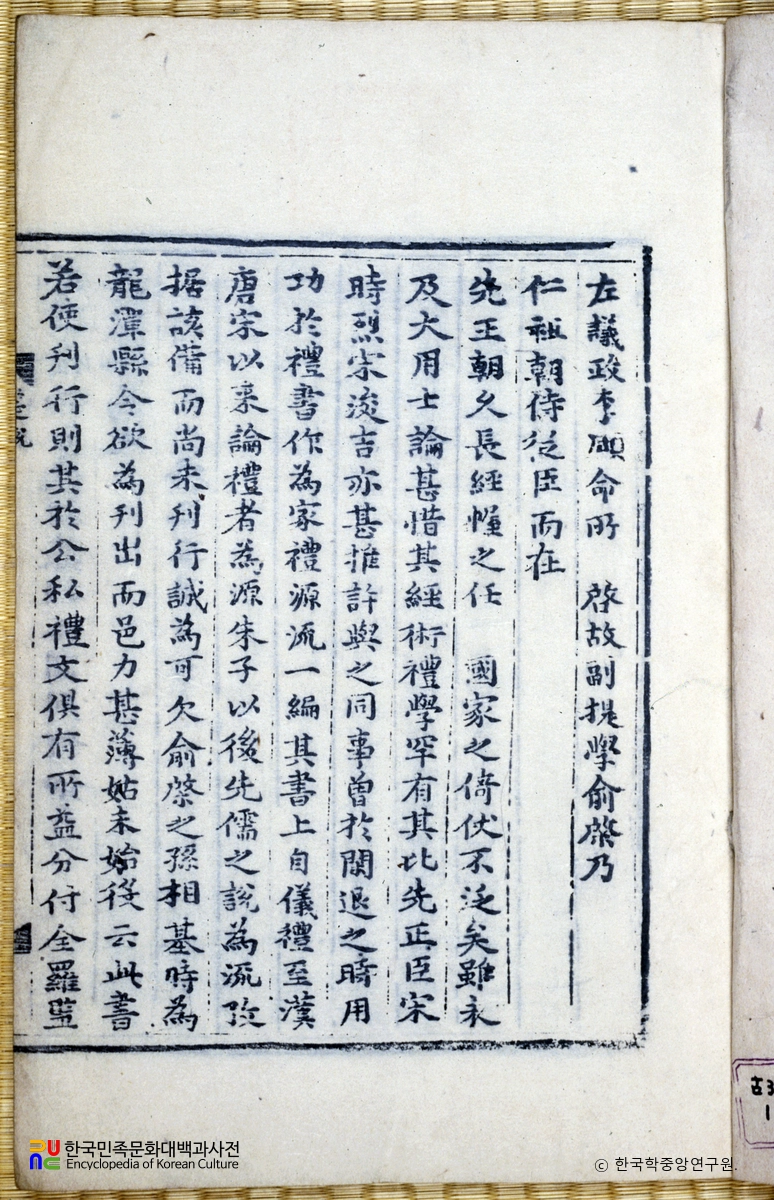 左議政李頤命所 啓故副提學俞棨乃
仁祖朝侍從臣而在
先王朝久長經幄之任 國家之倚仗不泛矣雖未
及大用士論甚惜其經術禮學罕有其比先正臣宋
時烈宋浚吉亦甚推許與之同事曾於閑退之時用
功於禮書作為家禮源流一編其書上自儀禮至漢
唐宋以來論禮者為源朱子以後先儒之說為流攷
据該備而尚未刊行誠為可欠俞棨之孫相基時為
龍潭縣令欲為刊出而邑力甚薄姑未始役云此書
若使刊行則其於公私禮文俱有所益分付全羅監
한국민족문화대백과사전
Encyclopedia of Korean Culture
© 한국학중앙연구원.